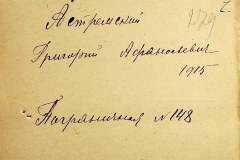 279
Ястремский
Григорий Афанасьевич
1915
Пограничная N 148